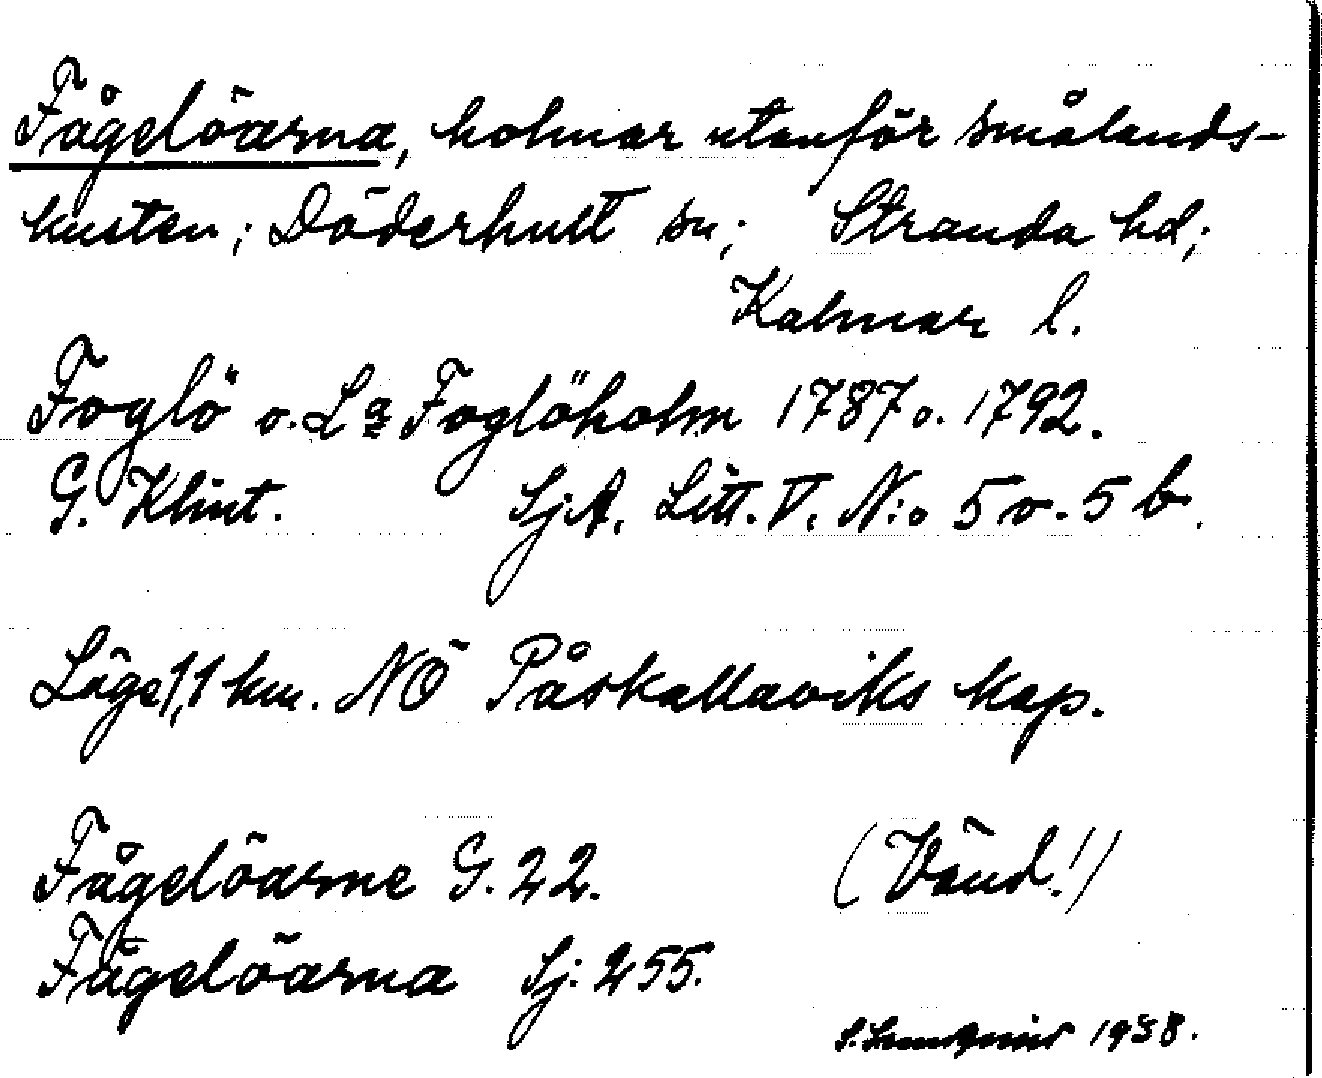 Fågelöarna, holmar utanför smålands-
kusten; Döderhult sn; Stranda hd;
Kalmar l.
Foglö o. La Foglöholm 1787 o. 1792.
G. Klint. Sj.A. Litt. V. N:o 5 o. 5 b.
Läge 1,1 km. NÖ Påskallaviks kap.
Fågelöarne G. 22. (Vänd!)
Fågelöarna Sj. 255.
1938.